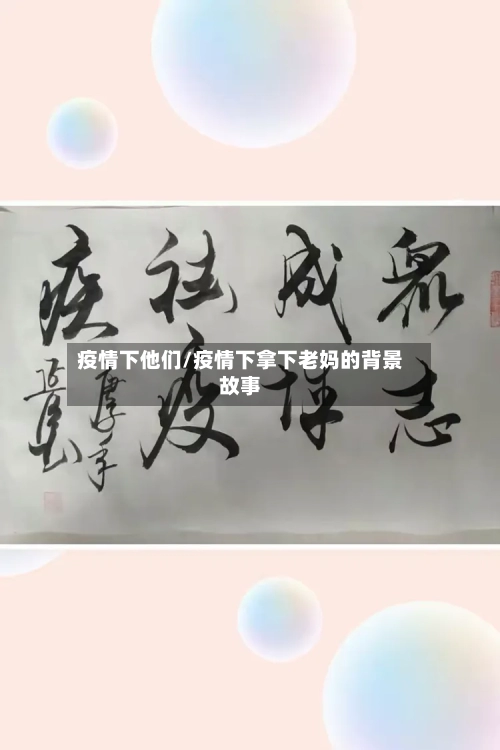 眾志
成城
祛疫
疾
疫情下他们/疫情下拿下老妈的背景
故事